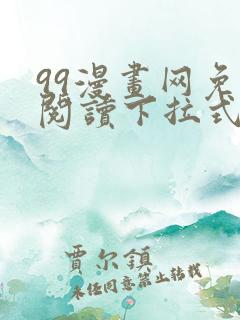 99漫畫网免
閱讀下拉式
贾尔鎮
未经同意禁止转载